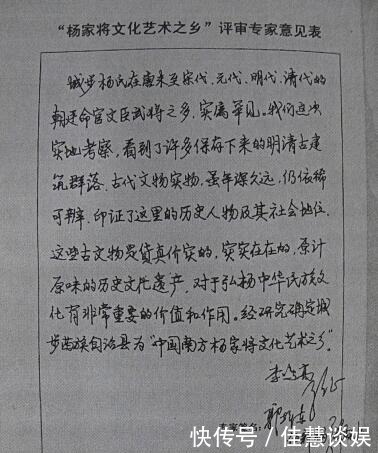 “杨家将文化艺术之乡”评审专家意见表
城步杨氏在唐末至宋代、元代、明代、清代的
朝廷命官文臣武将之多，实属罕见。我们这次
实地考察，看到了许多保存下来的明清古建
筑群落、古代文物实物，虽年深久远，仍依稀
可辨，印证了这里的历史人物及其社会地位，
这些古文物是货真价实的，实实在在的，原汁
原味的历史文化遗产，对于弘扬中华民族文
化有非常重要的价值和作用。经研究确定城
步苗族自治县为“中国南方杨家将文化艺术之乡”。
专家签名：
快传号 / 佳慧谈娱